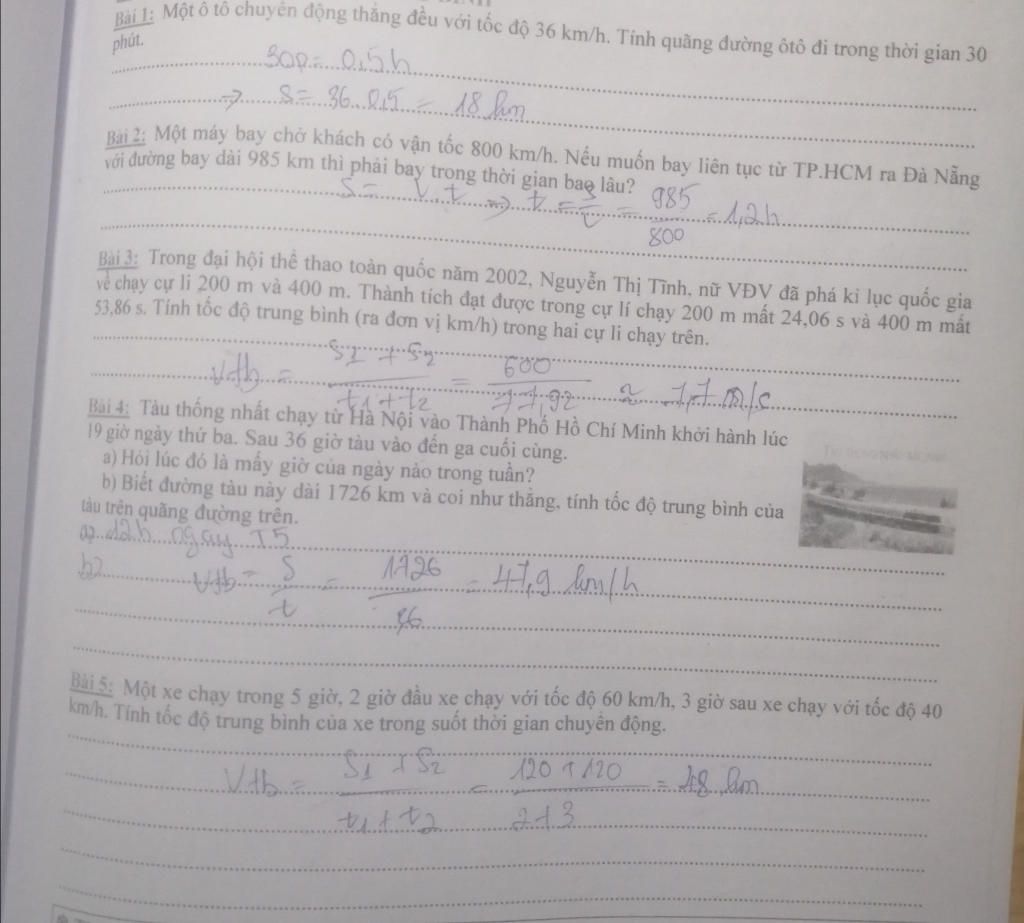 Bài 1: Một ô tô chuyển động thẳng đều với tốc độ 36 km/h. Tính quãng đường ôtô đi trong thời gian 30
phút.
30p = 0,5h
=> S = 36.0,5 = 18 km
Bài 2: Một máy bay chở khách có vận tốc 800 km/h. Nếu muốn bay liên tục từ TP.HCM ra Đà Nẵng
với đường bay dài 985 km thì phải bay trong thời gian bao lâu?
S = v.t => t = = 985
800 = 1,2h
Bài 3: Trong đại hội thể thao toàn quốc năm 2002, Nguyễn Thị Tĩnh, nữ VĐV đã phá kỉ lục quốc gia
về chạy cự li 200 m và 400 m. Thành tích đạt được trong cự lí chạy 200 m mất 24,06 s và 400 m mất
53,86 s. Tính tốc độ trung bình (ra đơn vị km/h) trong hai cự li chạy trên.
Vtb = S1 + S2
t1 + t2 = 600
77,92 ≈ 7,7 m/s
Bài 4: Tàu thống nhất chạy từ Hà Nội vào Thành Phố Hồ Chí Minh khởi hành lúc
19 giờ ngày thứ ba. Sau 36 giờ tàu vào đến ga cuối cùng.
a) Hỏi lúc đó là mấy giờ của ngày nào trong tuần?
b) Biết đường tàu này dài 1726 km và coi như thẳng, tính tốc độ trung bình của
tàu trên quãng đường trên.
a) ngay T5
b) Vtb = S
t = 1726
36 = 47,9 km/h
Bài 5: Một xe chạy trong 5 giờ, 2 giờ đầu xe chạy với tốc độ 60 km/h, 3 giờ sau xe chạy với tốc độ 40
km/h. Tính tốc độ trung bình của xe trong suốt thời gian chuyển động.
Vtb = S1 + S2
t1 + t2 = 120 + 120
2+3 = 48 km